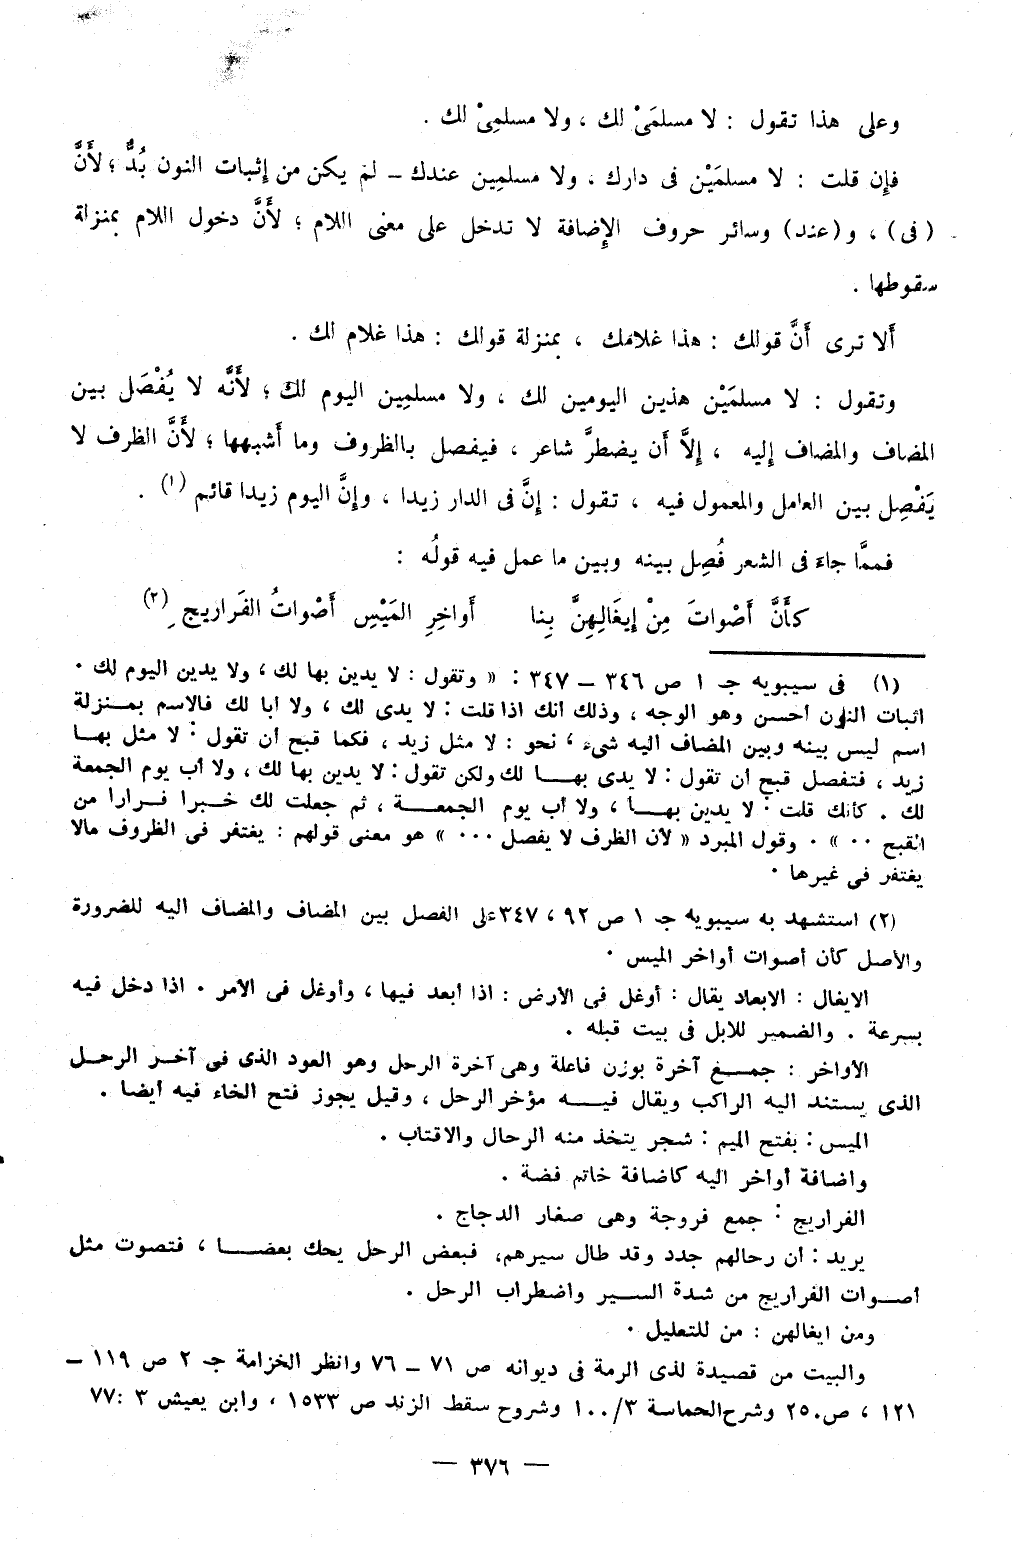 وعلى هذا تقول : لا مسلمَىْ لك ، ولا مسلمِىْ لك .
فإِن قلت : لا مسلمَيْن فى دارك ، ولا مسلمِين عندك – لم يكن من إِثبات النون بُدٌّ ؛ لأَنَّ
( فى ) ، و ( عند ) وسائر حروف الإِضافة لا تدخل على معنى اللام ؛ لأَنَّ دخول اللام بمنزلة
سقوطها .
أَلا ترى أَنَّ قولك : هذا غلامك ، بمنزلة قولك : هذا غلام لك .
وتقول : لا مسلمَيْن هذين اليومين لك ، ولا مسلمِين اليوم لك ؛ لأَنَّه لا يُفْصَل بين
المضاف والمضاف إِليه ، إِلاَّ أَن يضطرَّ شاعر ، فيفصل بالظروف وما أَشبهها ؛ لأَنَّ الظرف لا
يَفْصِل بين العامل والمعمول فيه ، تقول : إِنَّ فى الدار زيدا ، وإِنَّ اليوم زيدا قائم (١) .
فممَّا جاءَ فى الشعر فُصِل بينه وبين ما عمل فيه قولُه :
كأَنَّ أَصْواتَ مِنْ إِيغَالِهِنَّ بِنا أَواخِرِ المَيْسِ أَصْواتُ الفَراريجِ (٢)
(١) فى سيبويه جـ ١ ص ٣٤٦ – ٣٤٧ : « وتقول : لا يدين بها لك ، ولا يدين اليوم لك .
اثبات النون أحسن وهو الوجه ، وذلك أنك اذا قلت : لا يدى لك ، ولا أبا لك فالاسم بمنزلة
اسم ليس بينه وبين المضاف اليه شىء ، نحو : لا مثل زيد ، فكما قبح أن تقول : لا مثل بها
زيد ، فتفصل قبح أن تقول : لا يدى بها لك ولكن تقول : لا يدين بها لك ، ولا أب يوم الجمعة
لك . كأنك قلت : لا يدين بها ، ولا أب يوم الجمعة ، ثم جعلت لك خبرا فرارا من
القبح .. » . وقول المبرد « لأن الظرف لا يفصل ... » هو معنى قولهم : يغتفر فى الظروف مالا
يغتفر فى غيرها .
(٢) استشهد به سيبويه جـ ١ ص ٩٢ ، ٣٤٧ على الفصل بين المضاف والمضاف اليه للضرورة
والأصل كأن أصوات أواخر الميس .
الايغال : الابعاد يقال : أوغل فى الأرض : اذا أبعد فيها ، وأوغل فى الأمر . اذا دخل فيه
بسرعة . والضمير للابل فى بيت قبله .
الأواخر : جمع آخرة بوزن فاعلة وهى آخرة الرحل وهو العود الذى فى آخر الرحل
الذى يستند اليه الراكب ويقال فيه مؤخر الرحل ، وقيل يجوز فتح الخاء فيه أيضا .
الميس : بفتح الميم : شجر يتخذ منه الرحال والأقتاب .
واضافة أواخر اليه كاضافة خاتم فضة .
الفراريج : جمع فروجة وهى صغار الدجاج .
يريد : أن رحالهم جدد وقد طال سيرهم، فبعض الرحل يحك بعضا ، فتصوت مثل
أصوات الفراريج من شدة السير واضطراب الرحل .
ومن ايغالهن : من للتعليل .
والبيت من قصيدة لذى الرمة فى ديوانه ص ٧١ – ٧٦ وانظر الخزامة جـ ٢ ص ١١٩ –
١٢١ ، ص٢٥٠ وشرح الحماسة ١٠٠/٣ وشروح سقط الزند ص ١٥٣٣ ، وابن يعيش ٣ :٧٧
— ٣٧٦ —